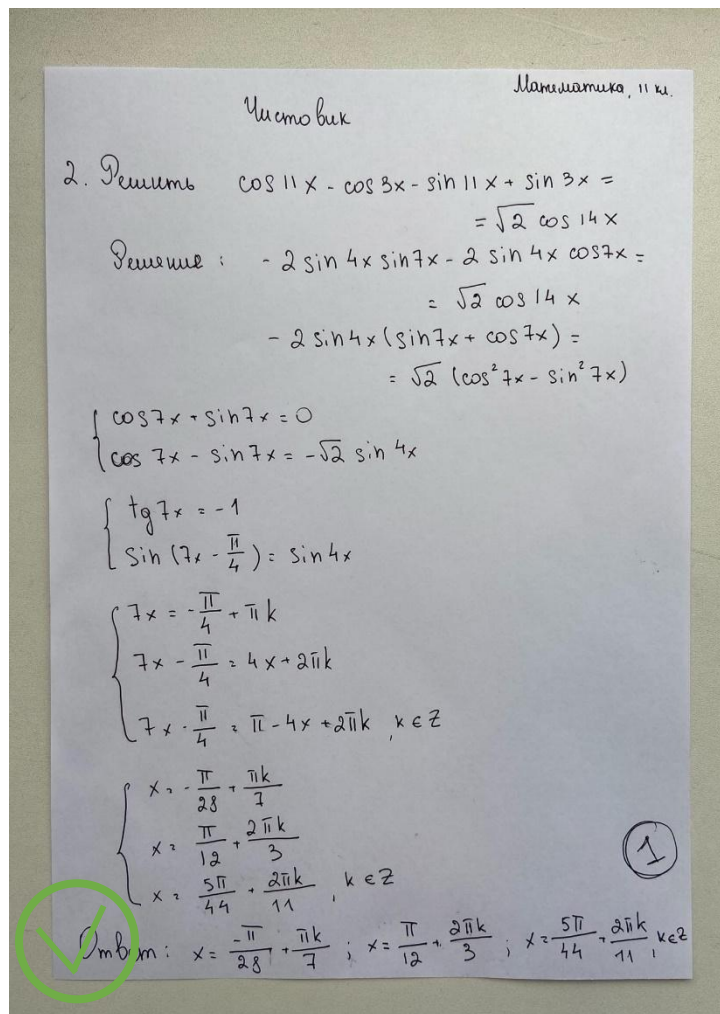 Математика, 11 кл.
Чистовик
2. Решить cos 11x - cos 3x - sin 11x + sin 3x =
= √2 cos 14x
Решение: - 2 sin 4x sin7x - 2 sin 4x cos7x =
= √2 cos 14 x
- 2 sin4x (sin7x + cos7x) =
= √2 (cos² 7x - sin² 7x)
cos7x + sin7x = 0
cos 7x - sin7x = -√2 sin 4x
tg7x = -1
sin (7x - π/4) = sin4x
7x = -π/4 + πk
7x - π/4 = 4x + 2πk
7x - π/4 = π - 4x + 2πk, k ∈ Z
x = -π/28 + πk/7
x = π/12 + 2πk/3
x = 5π/44 + 2πk/11, k ∈ Z
1
Ответ: x = -π/28 + πk/7; x = π/12 + 2πk/3; x = 5π/44 + 2πk/11, k∈Z